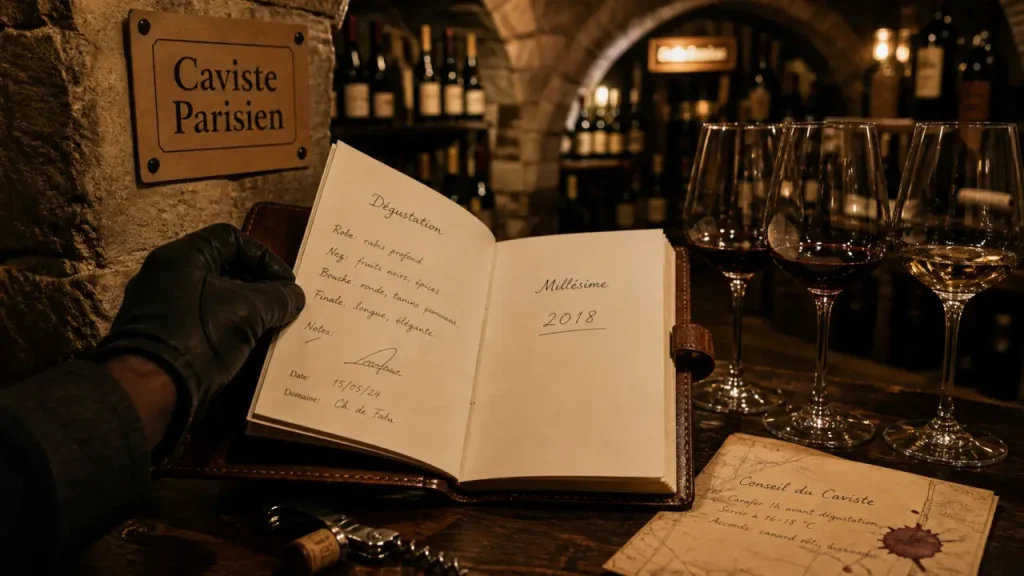 Caviste
Parisien
Dégustation
Robe: rubis profond
Nez: fruits noirs, épices
Bouche, ronde, tanins
Finale: longue, élégante
Notes:
Date: 15/05/24
Domaine: Ch. de
Millésime
2018
Conseil du Caviste
Carafer 1h avant dégustation
Servir à 16-18 °C
Accords: canard rôti,